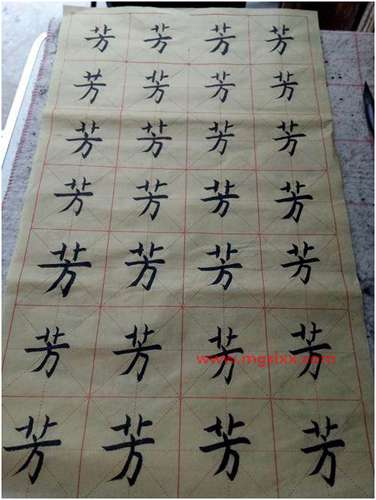 芳 芳 芳 芳
芳 芳 芳 芳
芳 芳 芳 芳
芳 芳 芳 芳
芳 芳 芳 芳
芳 芳 芳 芳
www.mgslxx.com
芳 芳 芳 芳